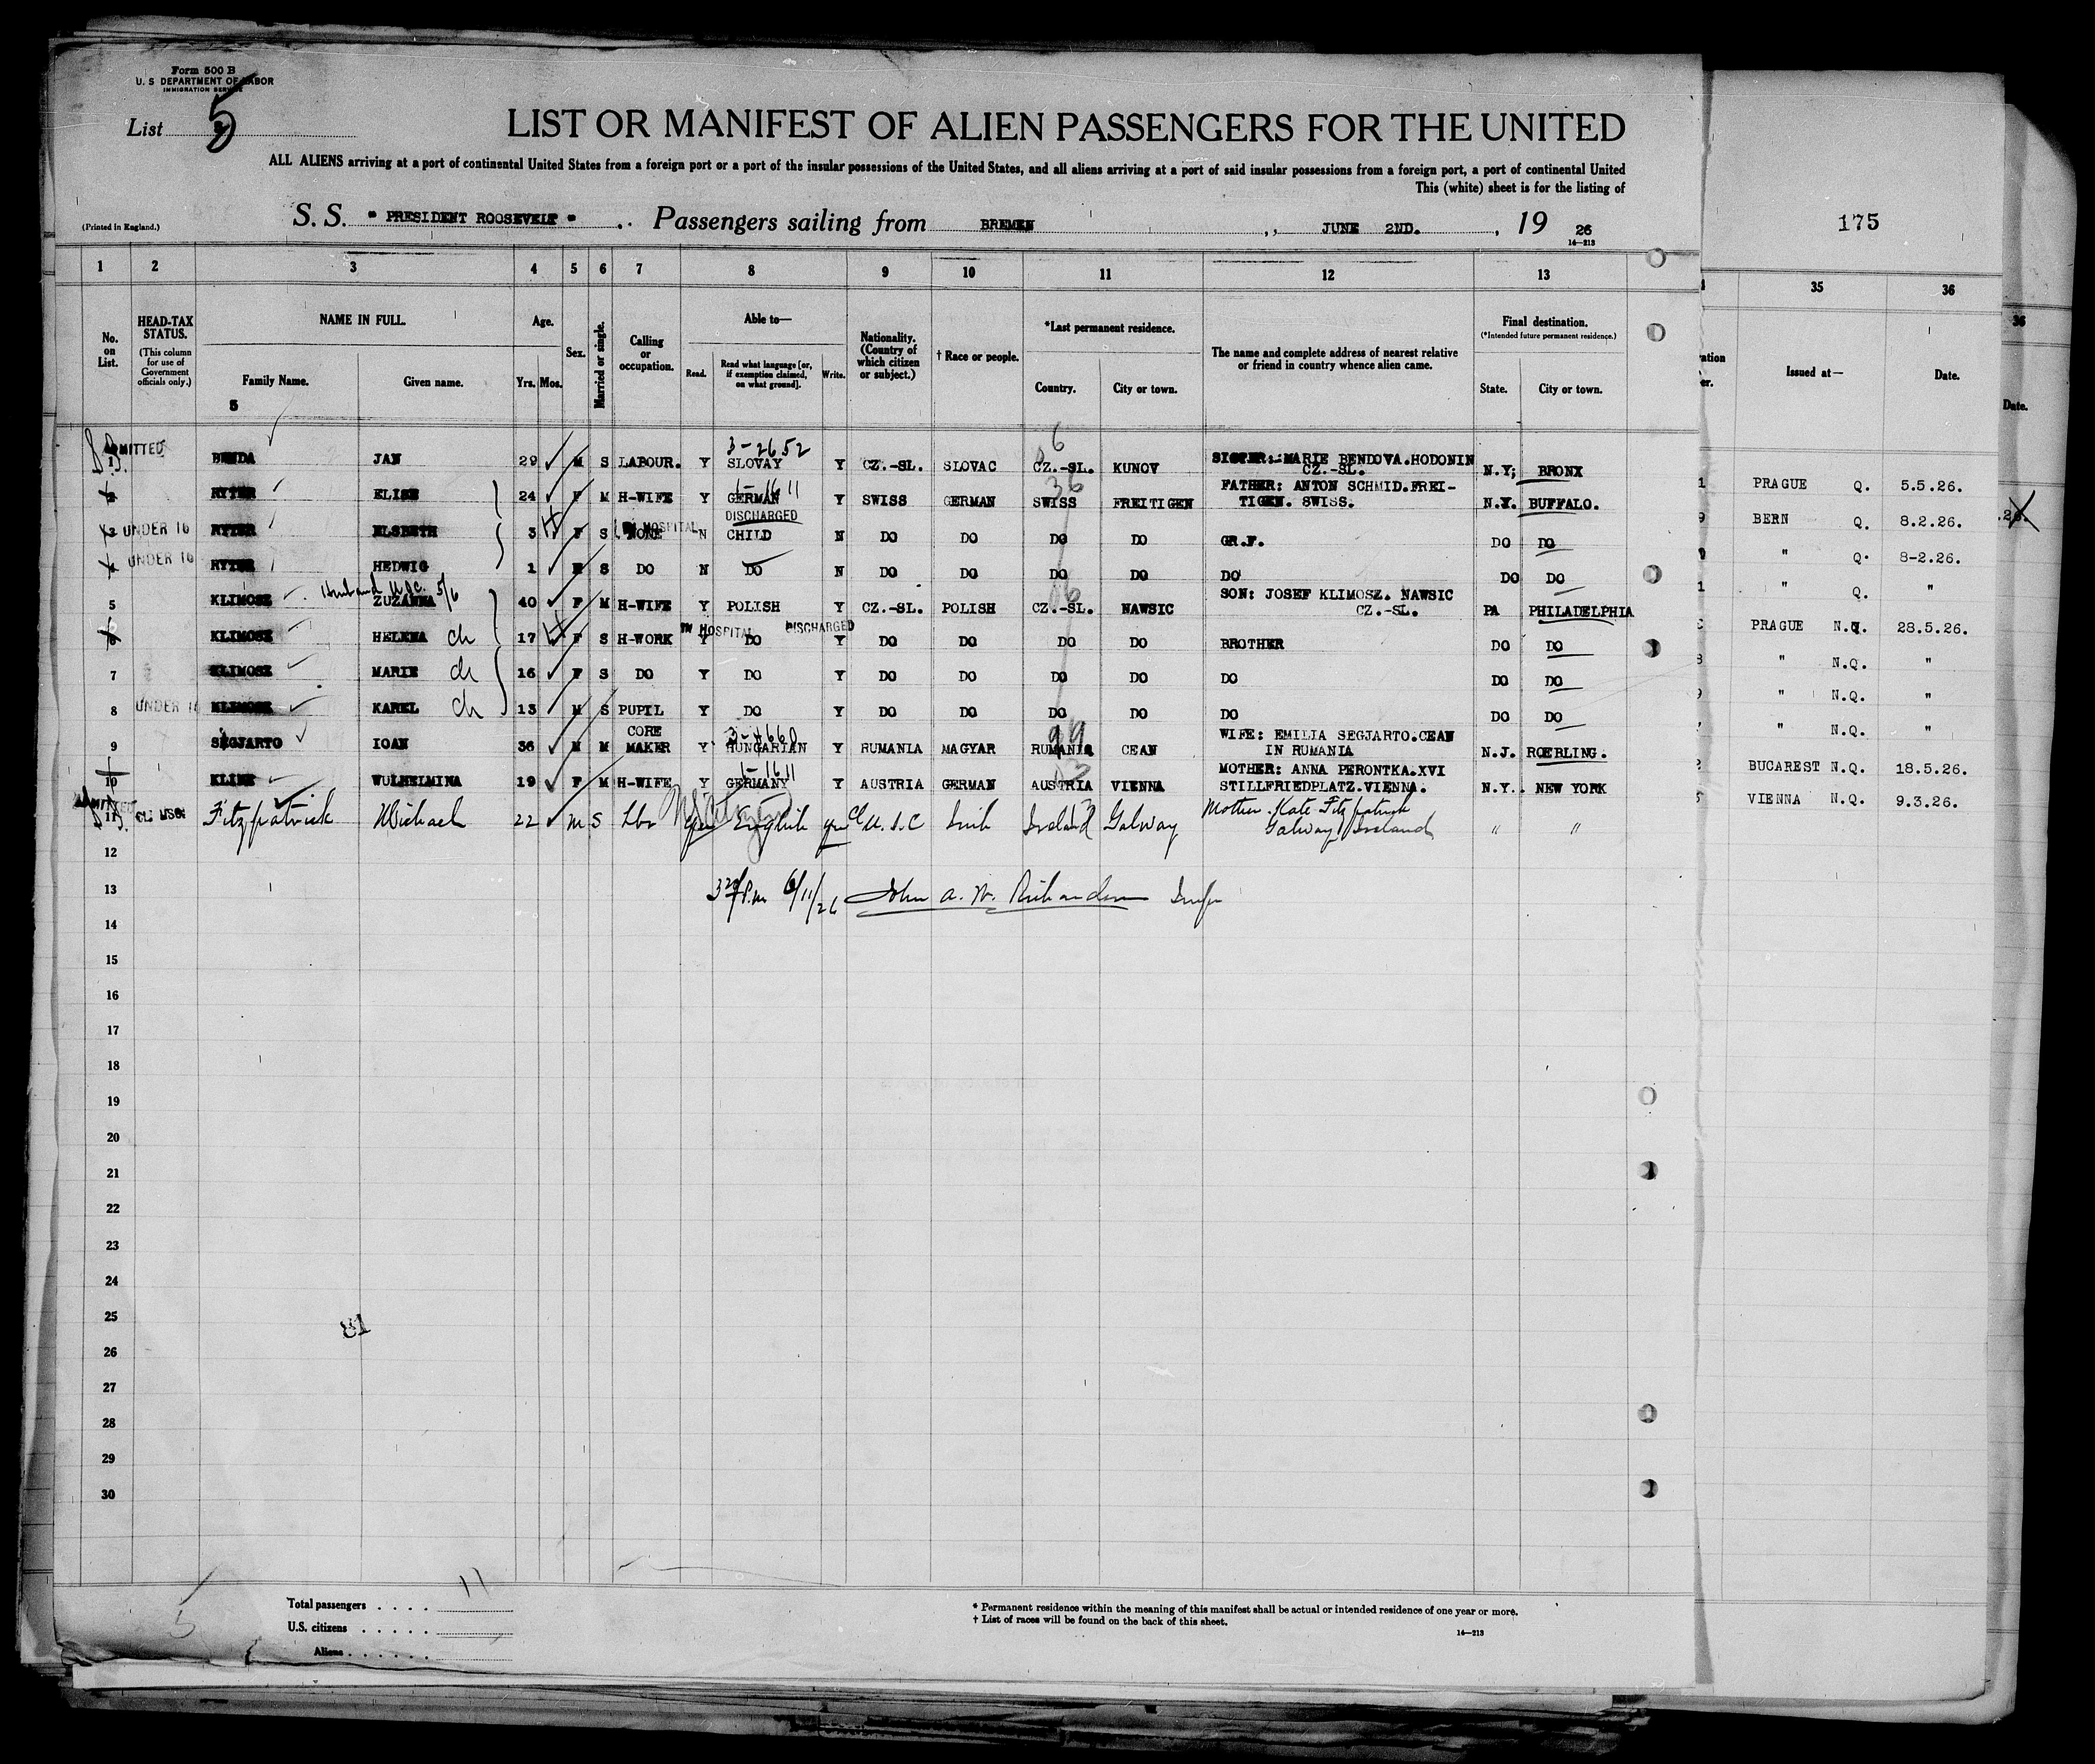 Form 500 B
U. S DEPARTMENT OF LABOR
IMMIGRATION SERVICE
List 5
LIST OR MANIFEST OF ALIEN PASSENGERS FOR THE UNITED
ALL ALIENS arriving at a port of continental United States from a foreign port or a port of the insular possessions of the United States, and all aliens arriving at a port of said insular possessions from a foreign port, a port of continental United
This (white) sheet is for the listing of
(Printed in England.)
S. S. " PRESIDENT ROOSEVELT " Passengers sailing from BREMEN , JUNE 2ND. , 19 26
14—213
175
1 2 3 4 5 6 7 8 9 10 11 12 13 35 36
No. on List.
HEAD-TAX STATUS.
(This column for use of Government officials only.)
NAME IN FULL.
Family Name. Given name.
5
Age.
Yrs. Mos.
Sex.
Married or single.
Calling or occupation.
Able to—
Read. Read what language [or, if exemption claimed, on what ground]. Write.
Nationality. (Country of which citizen or subject.)
† Race or people.
*Last permanent residence.
Country. City or town.
The name and complete address of nearest relative or friend in country whence alien came.
Final destination.
(*Intended future permanent residence.)
State. City or town.
Issued at— Date.
36
Date.
ADMITTED
3-2652
6
1 BENDA JAN 29 M S LABOUR. Y SLOVAY Y CZ.-SL. SLOVAC CZ.-SL. KUNOV SISTER: MARIE BENDOVA.HODONIN CZ.-SL. N.Y; BRONX PRAGUE Q. 5.5.26.
1-1611
36
2 RYTER ELISE 24 F M H-WIFE Y GERMAN Y SWISS GERMAN SWISS FREITIGEN FATHER: ANTON SCHMID.FREI-TIGEN. SWISS. N.Y. BUFFALO. BERN Q. 8.2.26.
DISCHARGED
IN HOSPITAL
3 UNDER 16 RYTER ELSBETH 3 F S NONE N CHILD N DO DO DO DO GR.F. DO DO " Q. 8-2.26.
4 UNDER 16 RYTER HEDWIG 1 S DO N DO N DO DO DO DO DO DO DO " Q. "
Husband U.S.C. 5/6
5 KLIMOSZ ZUZANNA 40 F M H-WIFE Y POLISH Y CZ.-SL. POLISH CZ.-SL. NAWSIC SON: JOSEF KLIMOSZ. NAWSIC CZ.-SL. PA PHILADELPHIA PRAGUE N.Q. 28.5.26.
IN HOSPITAL DISCHARGED
6 KLIMOSZ HELENA ch 17 F S H-WORK Y DO Y DO DO DO DO BROTHER DO DO " N.Q. "
7 KLIMOSZ MARIE ch 16 F S DO Y DO Y DO DO DO DO DO DO DO " N.Q. "
8 UNDER 16 KLIMOSZ KAREL ch 13 M S PUPIL Y DO Y DO DO DO DO DO DO DO " N.Q. "
3-4660
99
9 SEGJARTO IOAN 36 M M CORE MAKER Y HUNGARIAN Y RUMANIA MAGYAR RUMANIA CEAN WIFE: EMILIA SEGJARTO.CEAN IN RUMANIA N.J. ROEBLING. BUCAREST N.Q. 18.5.26.
1-1611
10 KLINE WULHELMINA 19 F M H-WIFE Y GERMANY Y AUSTRIA GERMAN AUSTRIA VIENNA MOTHER: ANNA PERONTKA.XVI STILLFRIEDPLATZ.VIENNA. N.Y. NEW YORK VIENNA N.Q. 9.3.26.
ADMITTED
11 Fitzpatrick Michael 22 M S Lbr yes English yes U.S.C Irish Ireland Galway Mother Kate Fitzpatrick Galway Ireland " "
12
13 3 20/ P.m 6/11/26 John A. W. Richardson Insp
14
15
16
17
18
19
20
21
22
23
24
25
26
27
28
29
30
Total passengers . . . . 11
U.S. citizens . . . . .
Aliens . . . . . .
* Permanent residence within the meaning of this manifest shall be actual or intended residence of one year or more.
† List of races will be found on the back of this sheet.
14—213